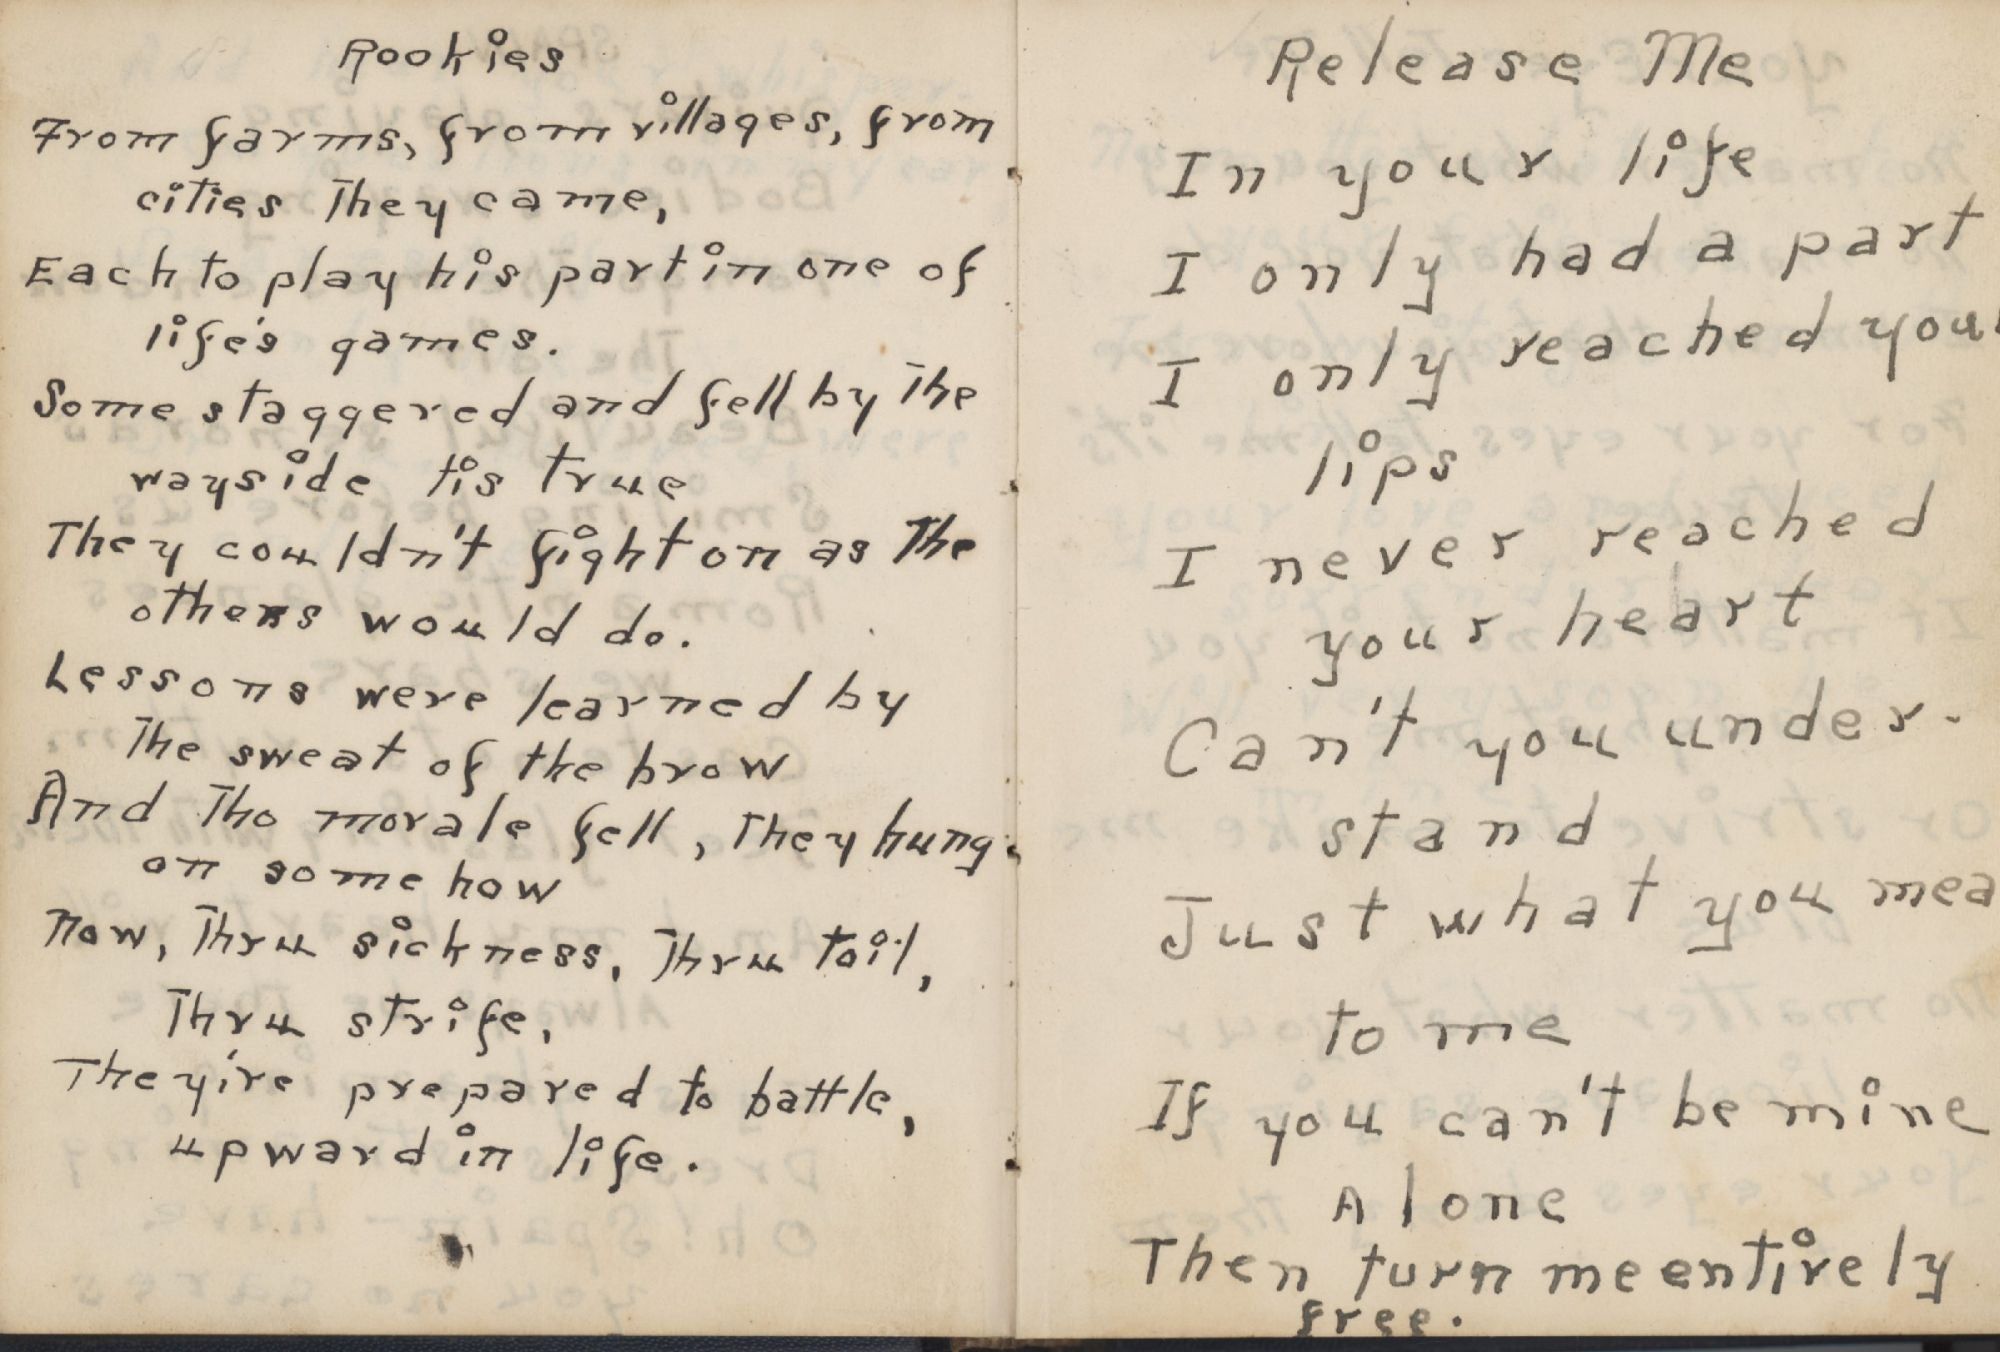 Rookies
From farms, from villages, from
cities they came,
Each to play his part in one of
life's games.
Some staggered and fell by the
wayside tis true
They couldn't fight on as the
others would do.
Lessons were learned by
the sweat of the brow
And tho morale fell, they hung
on somehow
Now, thru sickness, thru toil,
thru strife,
They're prepared to battle,
upward in life.
Release Me
In your life
I only had a part
I only reached your
lips
I never reached
your heart
Can't you under-
stand
Just what you mea
to me
If you can't be mine
Alone
Then turn me entirely
free.